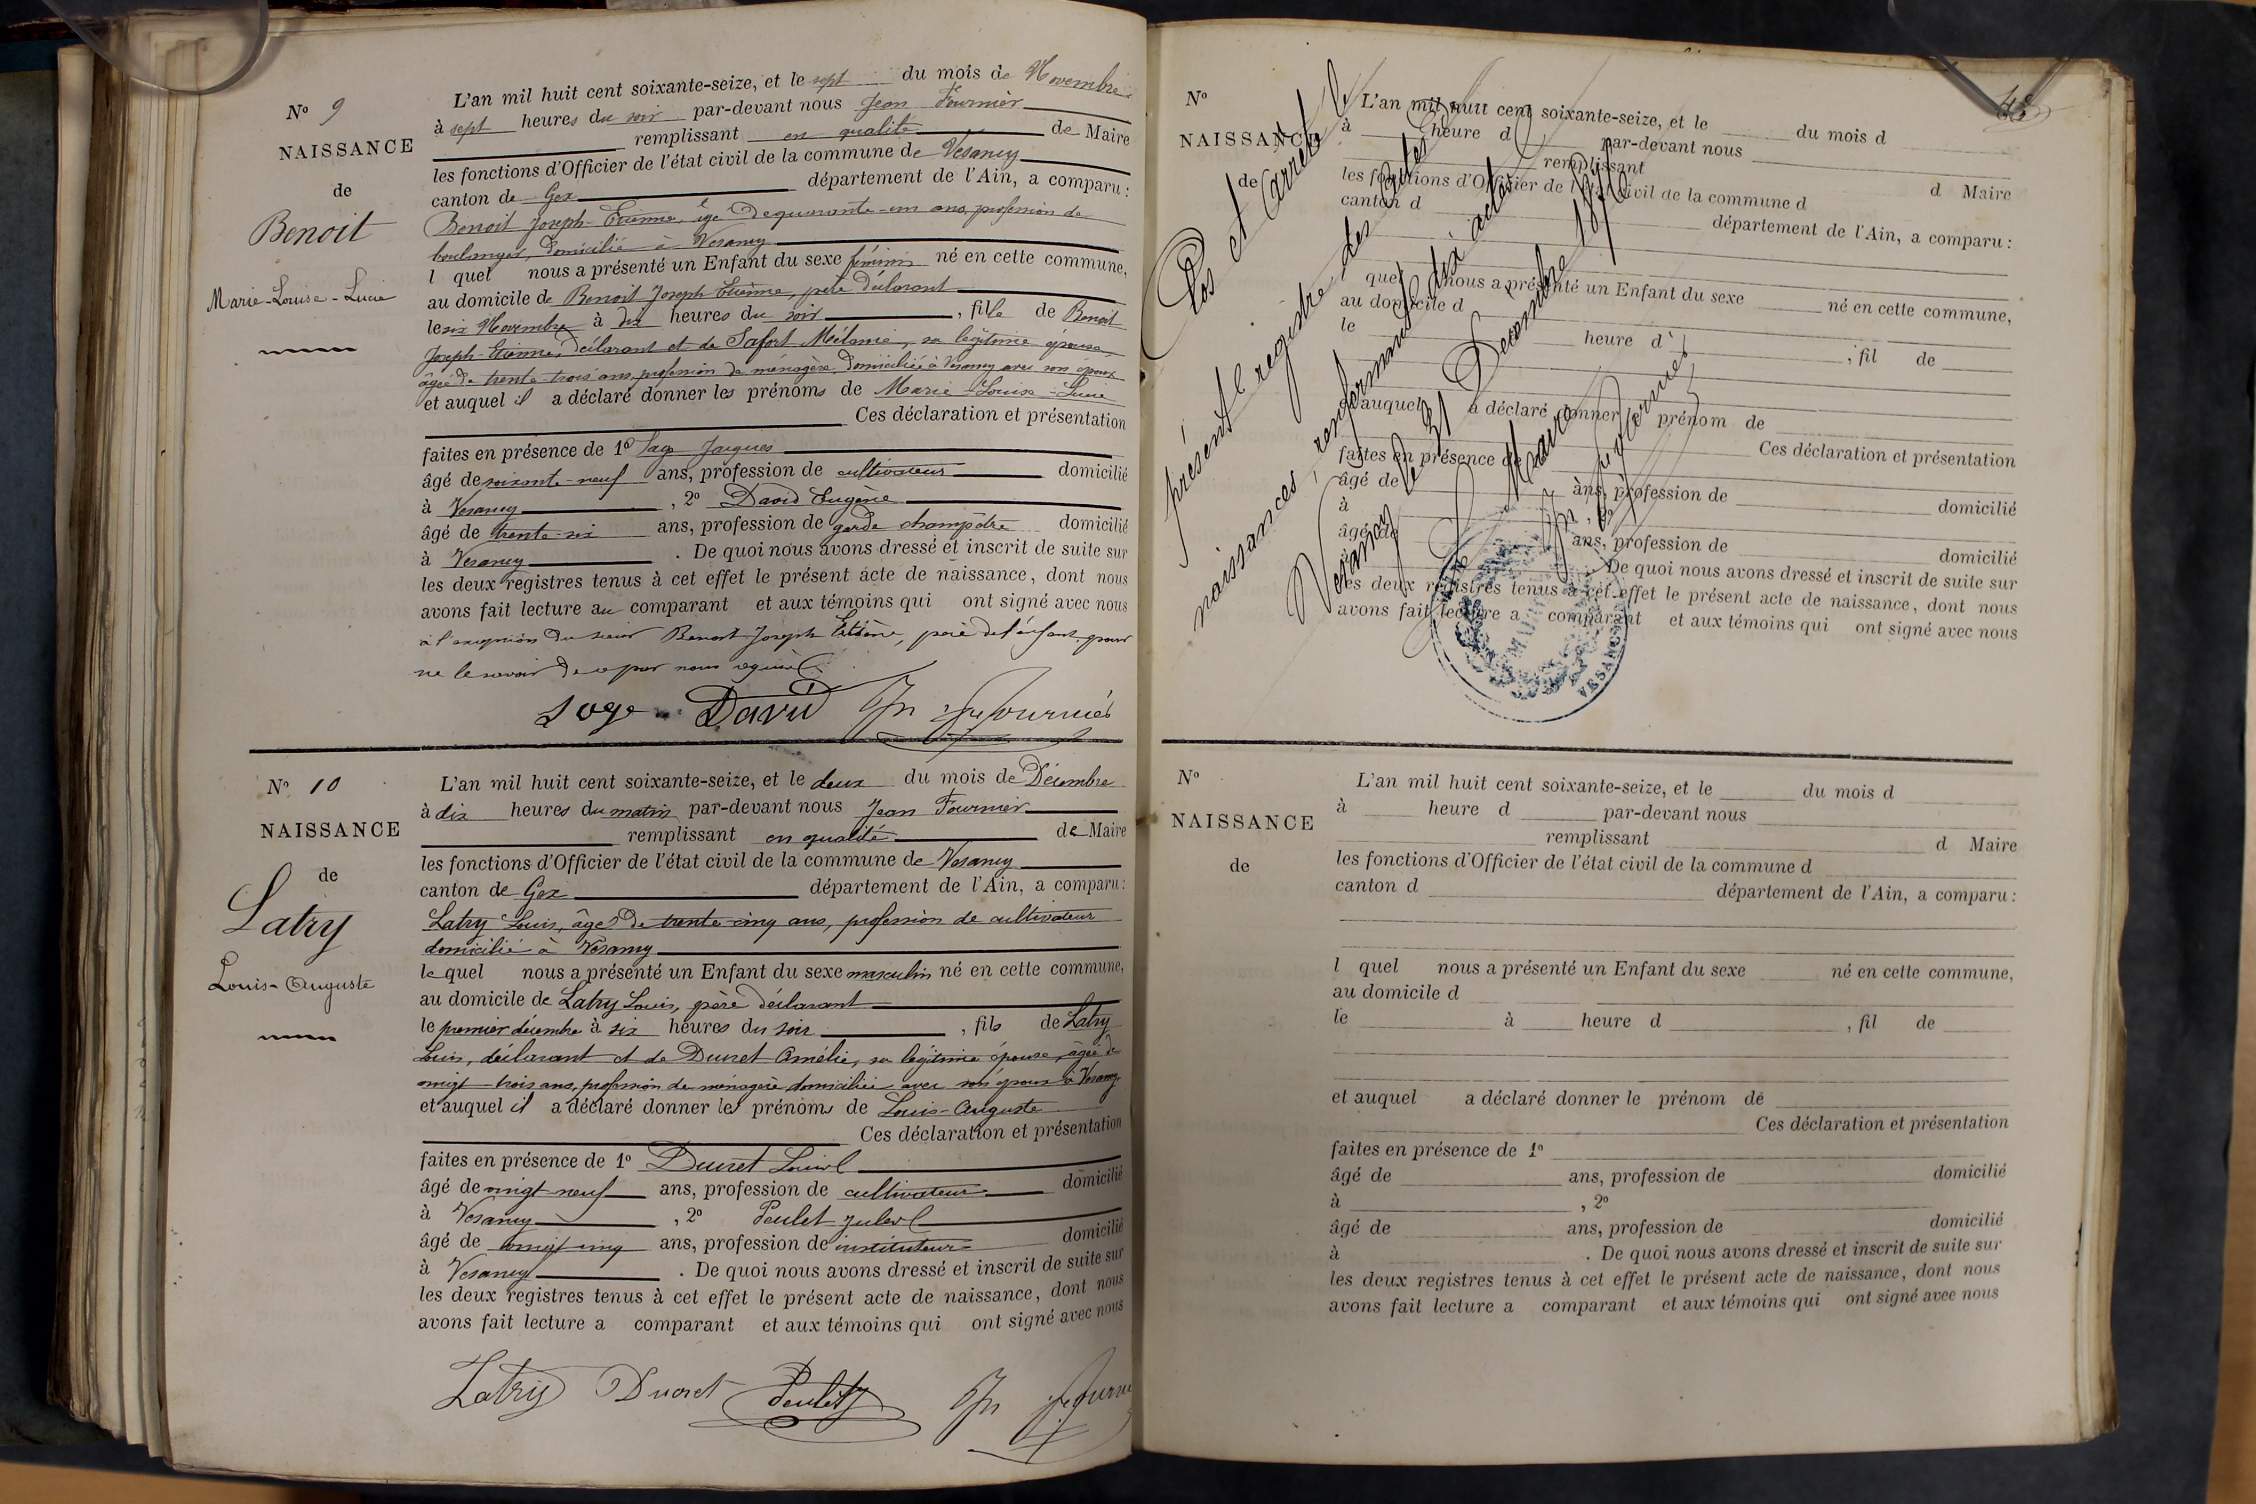 N° 9
NAISSANCE
de
Benoit
Marie-Louise-Lucie
L'an mil huit cent soixante-seize, et le sept du mois de Novembre
à sept heures du soir par-devant nous Jean Fournier
remplissant en qualité de Maire
les fonctions d'Officier de l'état civil de la commune de Vesancy
canton de Gex département de l'Ain, a comparu :
Benoit Joseph-Etienne, âgé de quarante-un ans, profession de
boulanger, domicilié à Vesancy
l quel nous a présenté un Enfant du sexe féminin né en cette commune,
au domicile de Benoit Joseph Etienne, père déclarant
le six Novembre à dix heures du soir , fille de Benoit
Joseph-Etienne, déclarant et de Safort Mélanie, sa légitime épouse,
âgée de trente trois ans, profession de ménagère, domiciliée à Vesancy avec son époux
et auquel il a déclaré donner les prénoms de Marie-Louise-Lucie
Ces déclaration et présentation
faites en présence de 1° Jacques
âgé de soixante-neuf ans, profession de cultivateur domicilié
à Vesancy , 2° David Eugène
âgé de trente-six ans, profession de garde champêtre domicilié
à Vesancy . De quoi nous avons dressé et inscrit de suite sur
les deux registres tenus à cet effet le présent acte de naissance, dont nous
avons fait lecture au comparant et aux témoins qui ont signé avec nous
à l'exception du sieur Benoit Joseph Etiène, père de l'enfant, pour
ne le savoir de ce par nous requis
David Jn Fournier
N° 10
NAISSANCE
de
Latry
Louis-Auguste
L'an mil huit cent soixante-seize, et le deux du mois de Décembre
à dix heures du matin par-devant nous Jean Fournier
remplissant en qualité de Maire
les fonctions d'Officier de l'état civil de la commune de Vesancy
canton de Gex département de l'Ain, a comparu :
Latry Louis, âgé de trente-cinq ans, profession de cultivateur
domicilié à Vesancy
le quel nous a présenté un Enfant du sexe masculin né en cette commune,
au domicile de Latry Louis, père déclarant
le premier décembre à six heures du soir , fils de Latry
Louis, déclarant et de Ducret Amélie, sa légitime épouse, âgée de
vingt-trois ans, profession de ménagère domiciliée avec son époux à Vesancy
et auquel il a déclaré donner les prénoms de Louis-Auguste
Ces déclaration et présentation
faites en présence de 1° Ducret Louis
âgé de vingt neuf ans, profession de cultivateur domicilié
à Vesancy , 2° Peulet Jules
âgé de vingt-cinq ans, profession de instituteur domicilié
à Vesancy . De quoi nous avons dressé et inscrit de suite sur
les deux registres tenus à cet effet le présent acte de naissance, dont nous
avons fait lecture a comparant et aux témoins qui ont signé avec nous
Latry Ducret Peulet Jn
N°
NAISSANCE
de
L'an mil huit cent soixante-seize, et le du mois d
à heure d par-devant nous
remplissant d Maire
les fonctions d'Officier de l'état civil de la commune d
canton d département de l'Ain, a comparu :
l quel nous a présenté un Enfant du sexe né en cette commune,
au domicile d
le heure d , fil de
et auquel a déclaré donner prénom de
Ces déclaration et présentation
faites en présence de
âgé de ans, profession de domicilié
à
âgé de ans, profession de domicilié
De quoi nous avons dressé et inscrit de suite sur
les deux registres tenus à cet effet le présent acte de naissance, dont nous
avons fait lecture a comparant et aux témoins qui ont signé avec nous
Clos et arrêté le
présent registre des actes de
naissances, renfermant dix actes
Vesancy le 31 Décembre 1876
Le Maire
Jn Fournier
MAIRIE
VESANCY
N°
NAISSANCE
de
L'an mil huit cent soixante-seize, et le du mois d
à heure d par-devant nous
remplissant d Maire
les fonctions d'Officier de l'état civil de la commune d
canton d département de l'Ain, a comparu :
l quel nous a présenté un Enfant du sexe né en cette commune,
au domicile d
le à heure d , fil de
et auquel a déclaré donner le prénom de
Ces déclaration et présentation
faites en présence de 1°
âgé de ans, profession de domicilié
à , 2°
âgé de ans, profession de domicilié
à . De quoi nous avons dressé et inscrit de suite sur
les deux registres tenus à cet effet le présent acte de naissance, dont nous
avons fait lecture a comparant et aux témoins qui ont signé avec nous